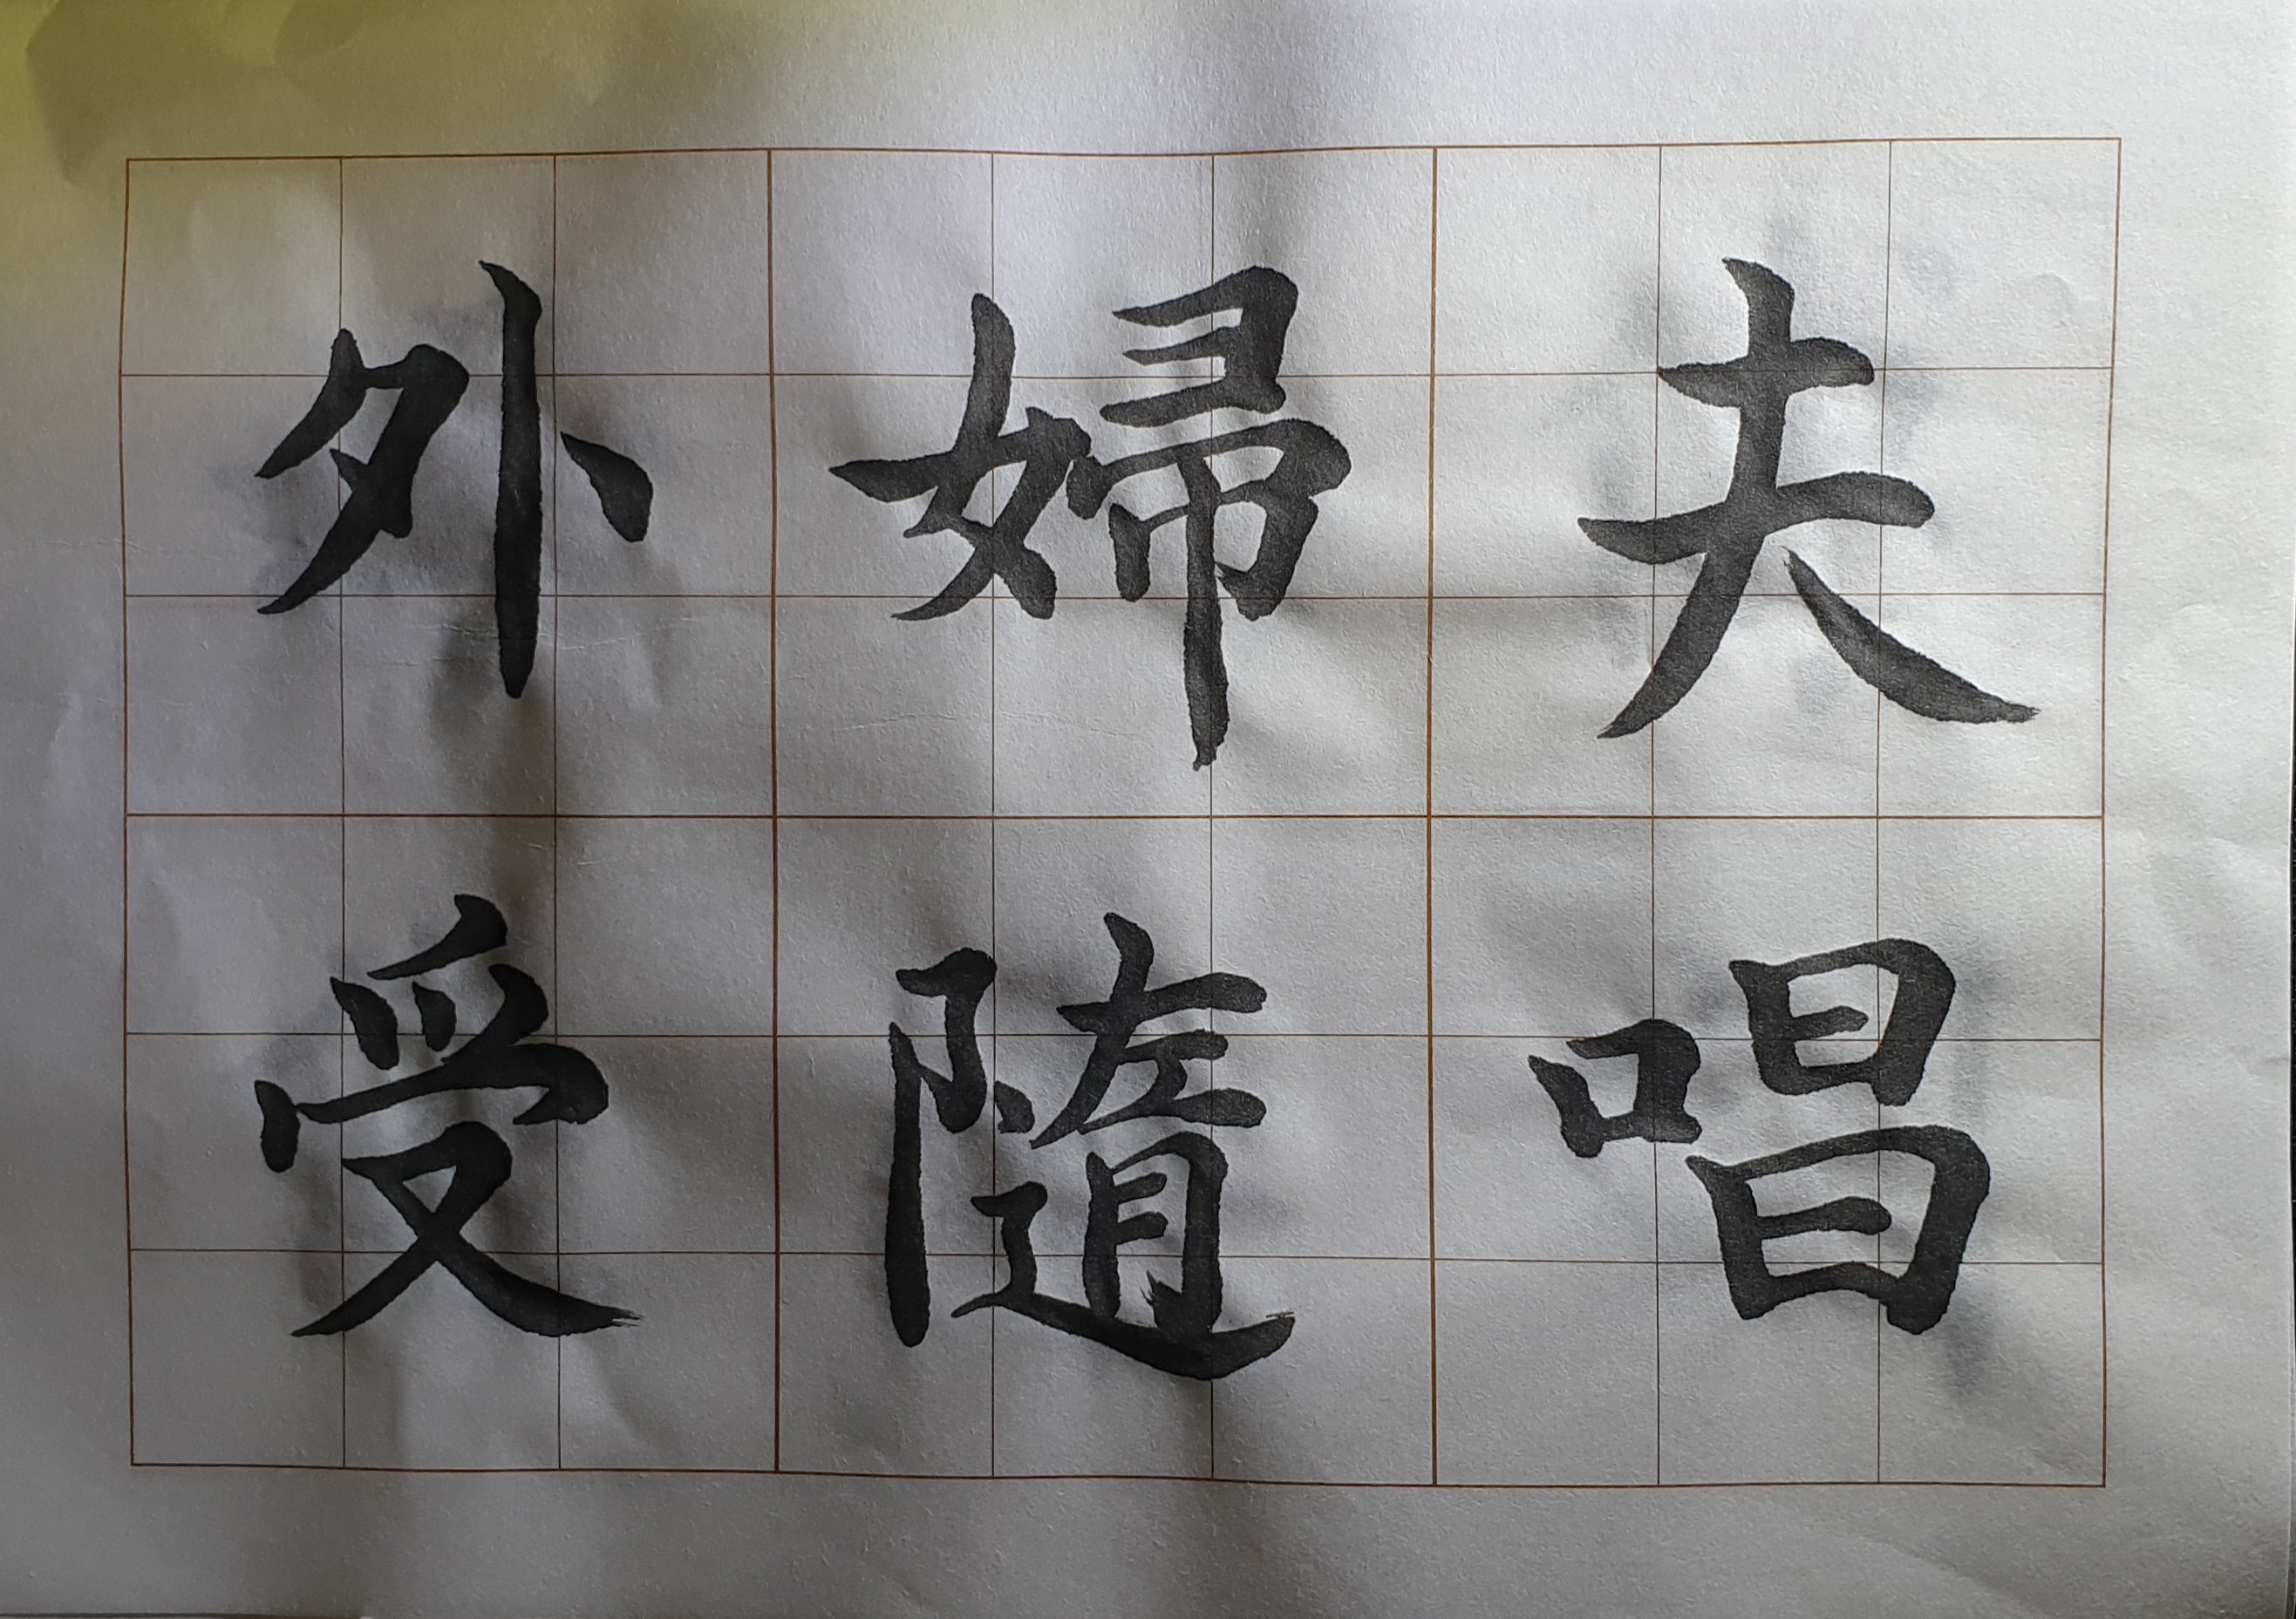 夫唱
婦隨
外受